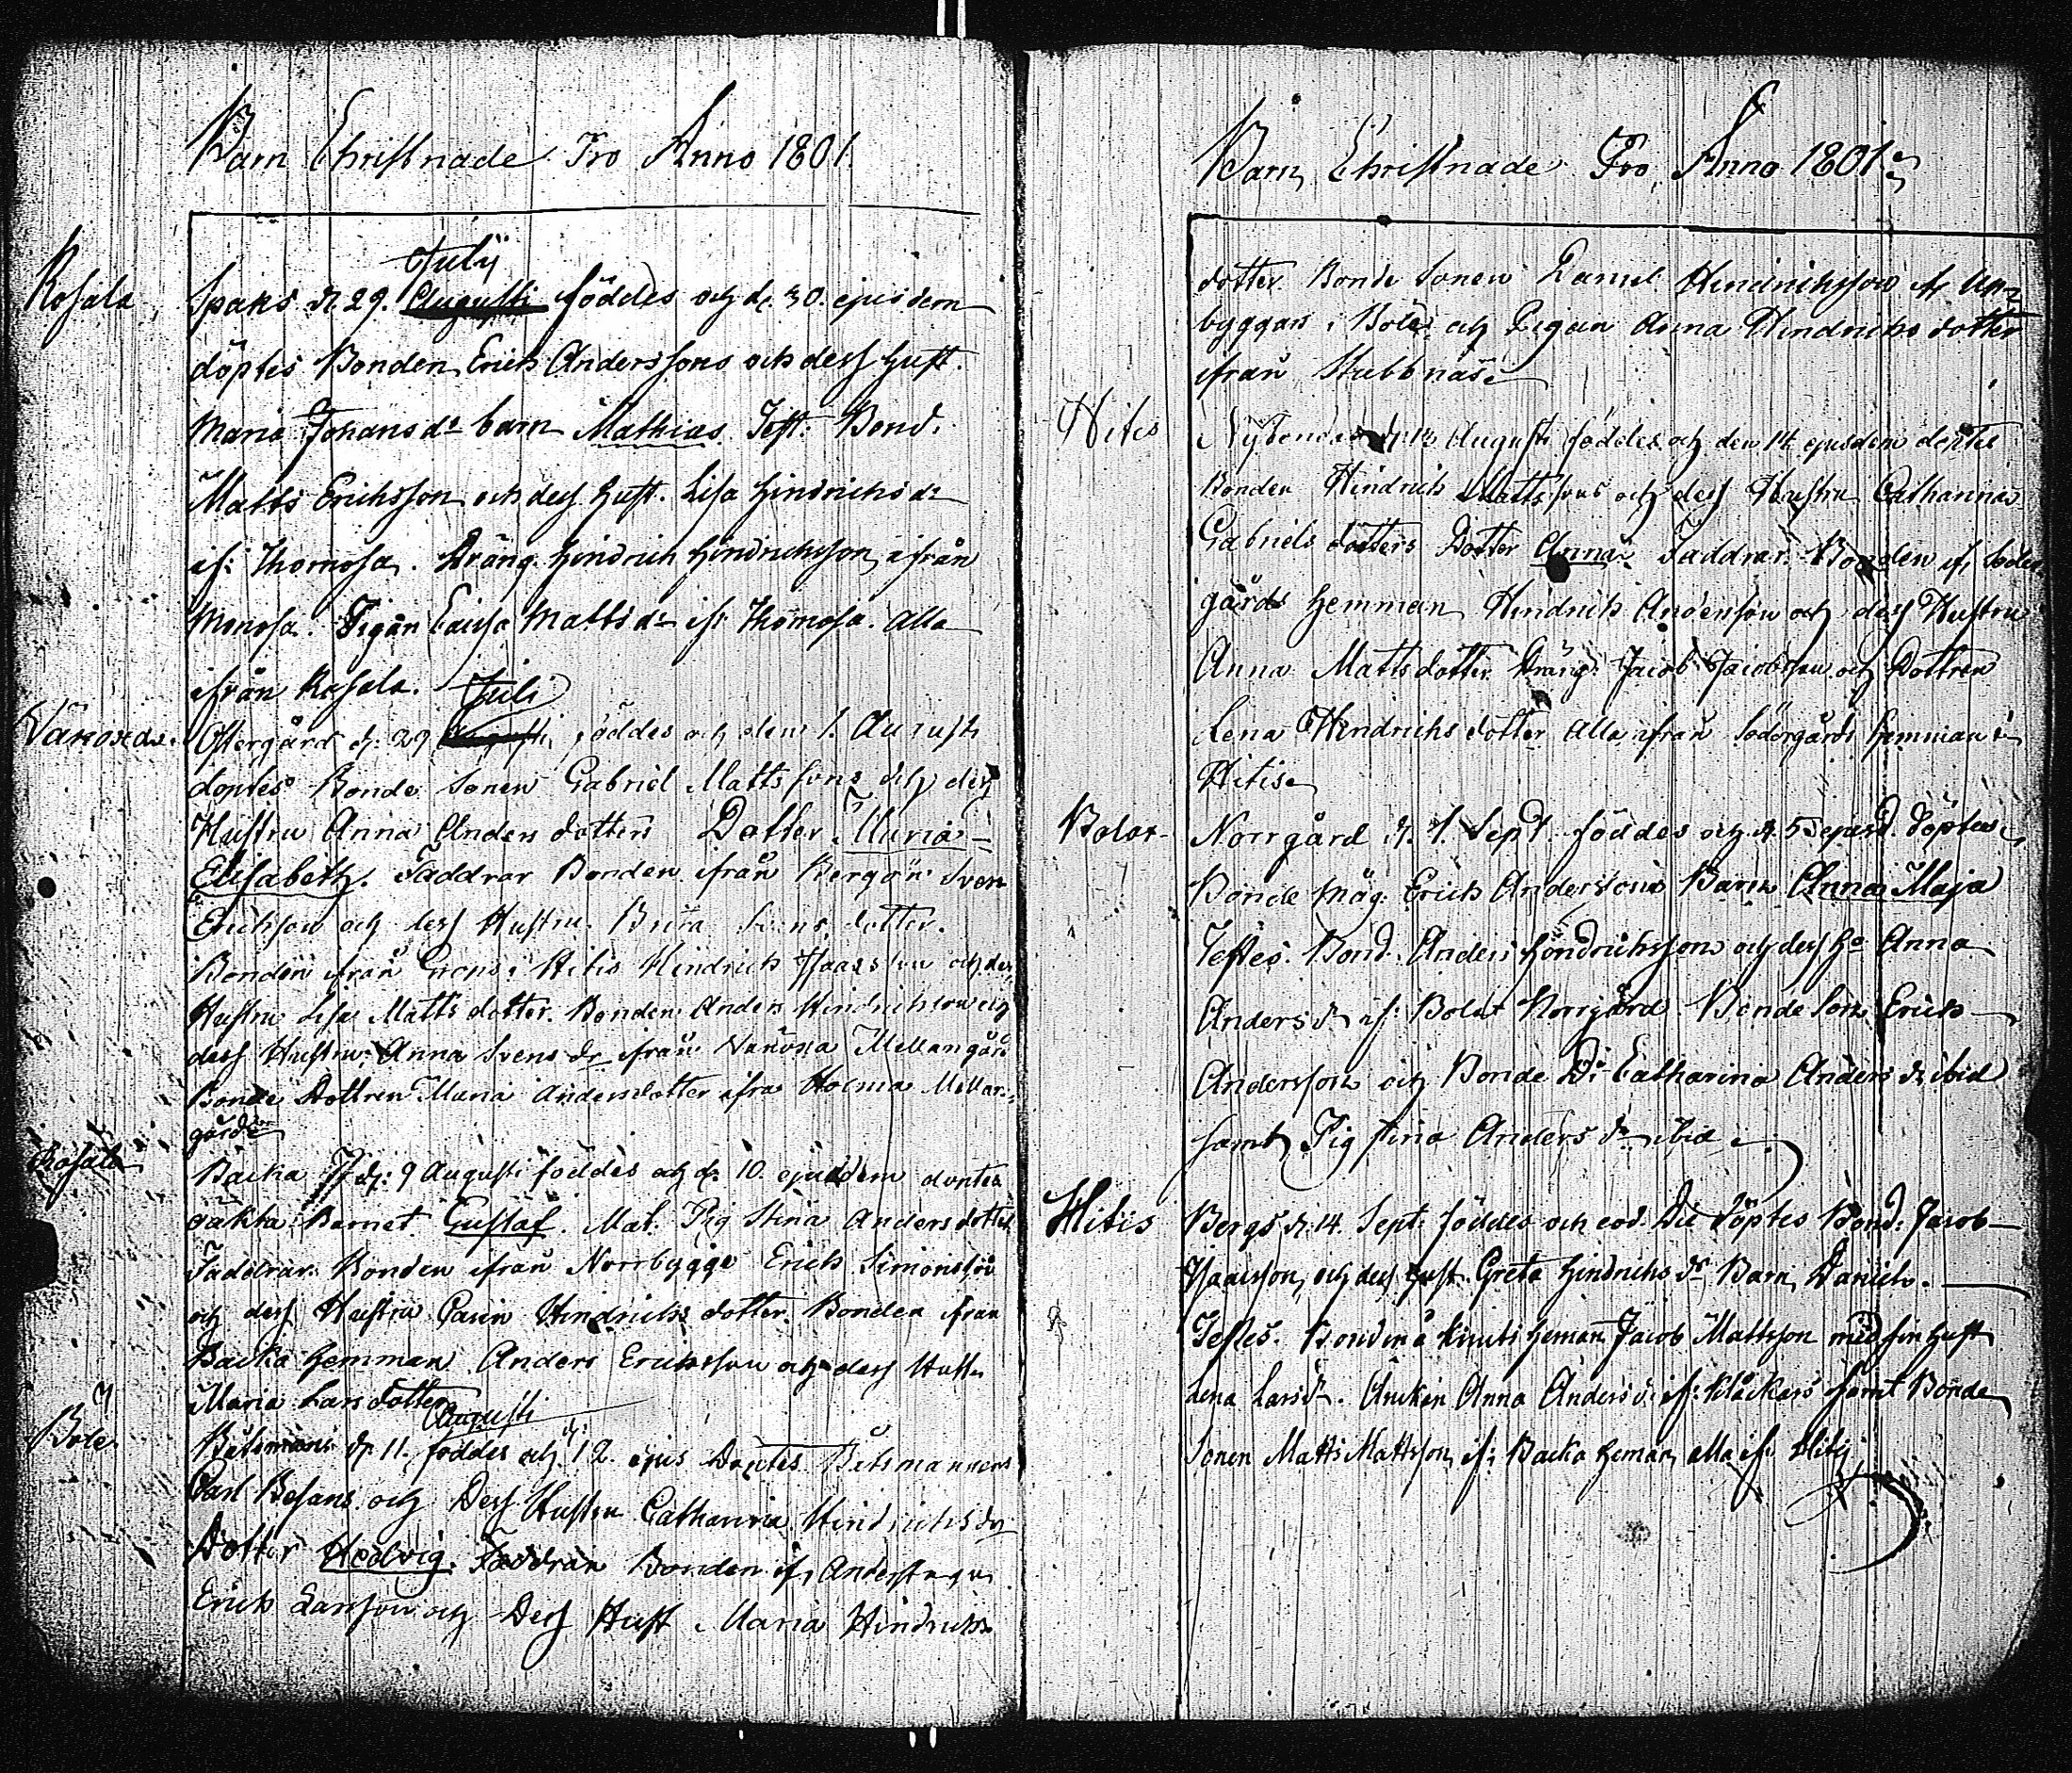 Barn Christnade Pro Anno 1801.
Rosala
Julij
Spaks d. 29. Augusti föddes och d. 30. ejusdem
döptes Bonden Erich Anderssons och dess Hust.
Maria Johansdr barn Mathias Test: Bond.
Matts Erichsson och dess Hust. Lisa Hindrichsdr
if: Thomosa. Dräng Hindrich Hindrichsson ifrån
Monosa. Pigan Caisa Mattsdr if: Thomosa. Alla
ifrån Rosala.
Juli
Vänoxa.
Östergård d. 29 Augusti föddes och den 1. Augusti
döptes Bonde Sonen Gabriel Mattssons och dess
Hustru Anna Anders dotters Dotter Maria
Elisabeth. Faddrar Bonden ifrån Bergön Sven
Erichson och dess Hustru Brita Svens dotter.
Bonden ifrån Hitis Hindrich Isaacsson och dess
Hustru Lisa Matts dotter. Bonden Anders Hindrichson och
dess Hustru Anna Svens dr ifrån Vänöxa Mellangård
Bonde Dottren Maria Andersdotter ifrå Holma Mellan-
gård
Rosala
Backa d: 9 Augusti föddes och d. 10. ejusdem döptes
oäkta Barnet Gustaf. Mat. Pig Stina Anders dotter
Faddrar: Bonden ifrån Norrbygge Erich Simonsson
och dess Hustru Carin Hindrichs dotter. Bonden ifrån
Backa Hemman Anders Erichsson och dess Hustru
Maria Lars dotter
Augusti
Böle
Båtsmans d. 11. föddes och d: 12. ejus Döptes Båtsmannens
Carl Besans och Dess Hustru Catharina Hindrichsdr
Dotter Hedvig. Faddrar Bonden if,
Erich Larsson och Dess Hust Maria Hindrichs
Barn Christnade Pro Anno 1801
dotter Bonde Sonen Daniel Hindrichsson if,
byggars i Böle och Pigan Anna Hindrichs dotter
ifrån Stubbnäs
Hitis
Nybondas d. 12 Augusti föddes och den 14 ejusdem döptes
Bonden Hindrich Mattssons och dess Hustru Catharina
Gabriels dotters Dotter Anna Faddrar. Bonden if, Söder
gårds Hemman Hindrich Anderson och dess Hustru
Anna Mattsdotter Dräng: Jacob Jacobson och Dottren
Lena Hindrichs dotter Alla ifrån Södergårds Hemman i
Hitis
Bolax
Norrgård d. 1. Sept. föddes och d. 5 ejusd. döptes
Bonde Måg: Erich Anderssons Barn Anna Maja
Testes. Bond. Anders Hindrichsson och dess Ho Anna
Anders dr if: Bolax Norrgård Bonde Son Erich
Andersson och Bonde Dr Catharina Anders dr ibid
samt Pig Stina Anders dr ibid
Hitis
Bergs d. 14. Sept: föddes och eod. Die döptes Bond: Jacob
Isaacsson och dess Hust. Greta Hindrichs dr Barn Daniel.
Testes. Bonden å Knuts Heman Jacob Mattsson med sin Hust
Lena Lars dr. Änkan Anna Anders dr if: Klåckars samt Bonde
Sonen Matts Mattsson if: Backa Heman alla if. Hitis